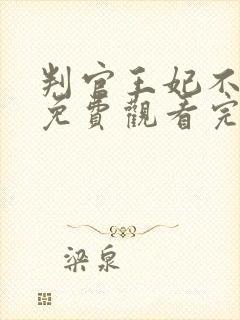 判官王妃不
免費觀看完
梁泉